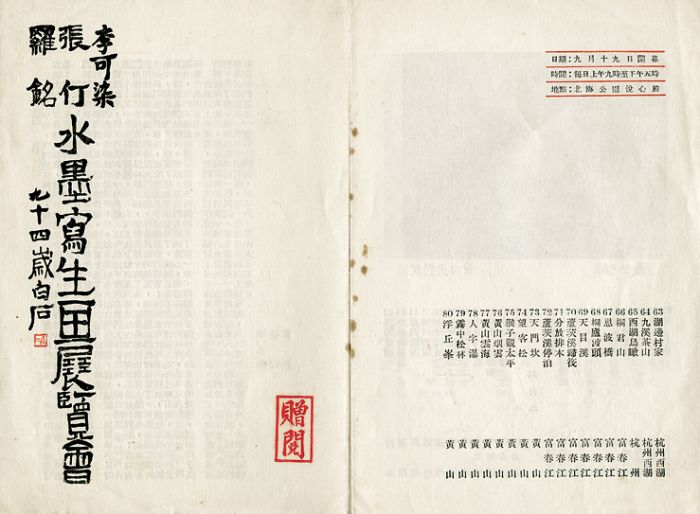 李可染
張仃
羅銘
水墨寫生画展覽會
九十四歲白石
贈閱
日期:九月十九日開幕
時間:每日上午九時至下午五時
地點:北海公園悅心殿
63 湖邊村家 杭州西湖
64 九溪茶山 杭州西湖
65 西湖鳥瞰 杭州
66 桐君山 富春江
67 恩波橋 富春江
68 桐廬渡頭 富春江
69 天目溪 富春江
70 蘆茨溪歸筏 富春江
71 分放排木 富春江
72 蘆茨溪停泊 富春江
73 天門坎 黃山
74 望客松 黃山
75 猴子觀太平 黃山
76 黃山烟雲 黃山
77 黃山雲海 黃山
78 人字瀑 黃山
79 霧中松林 黃山
80 浮丘峯 黃山